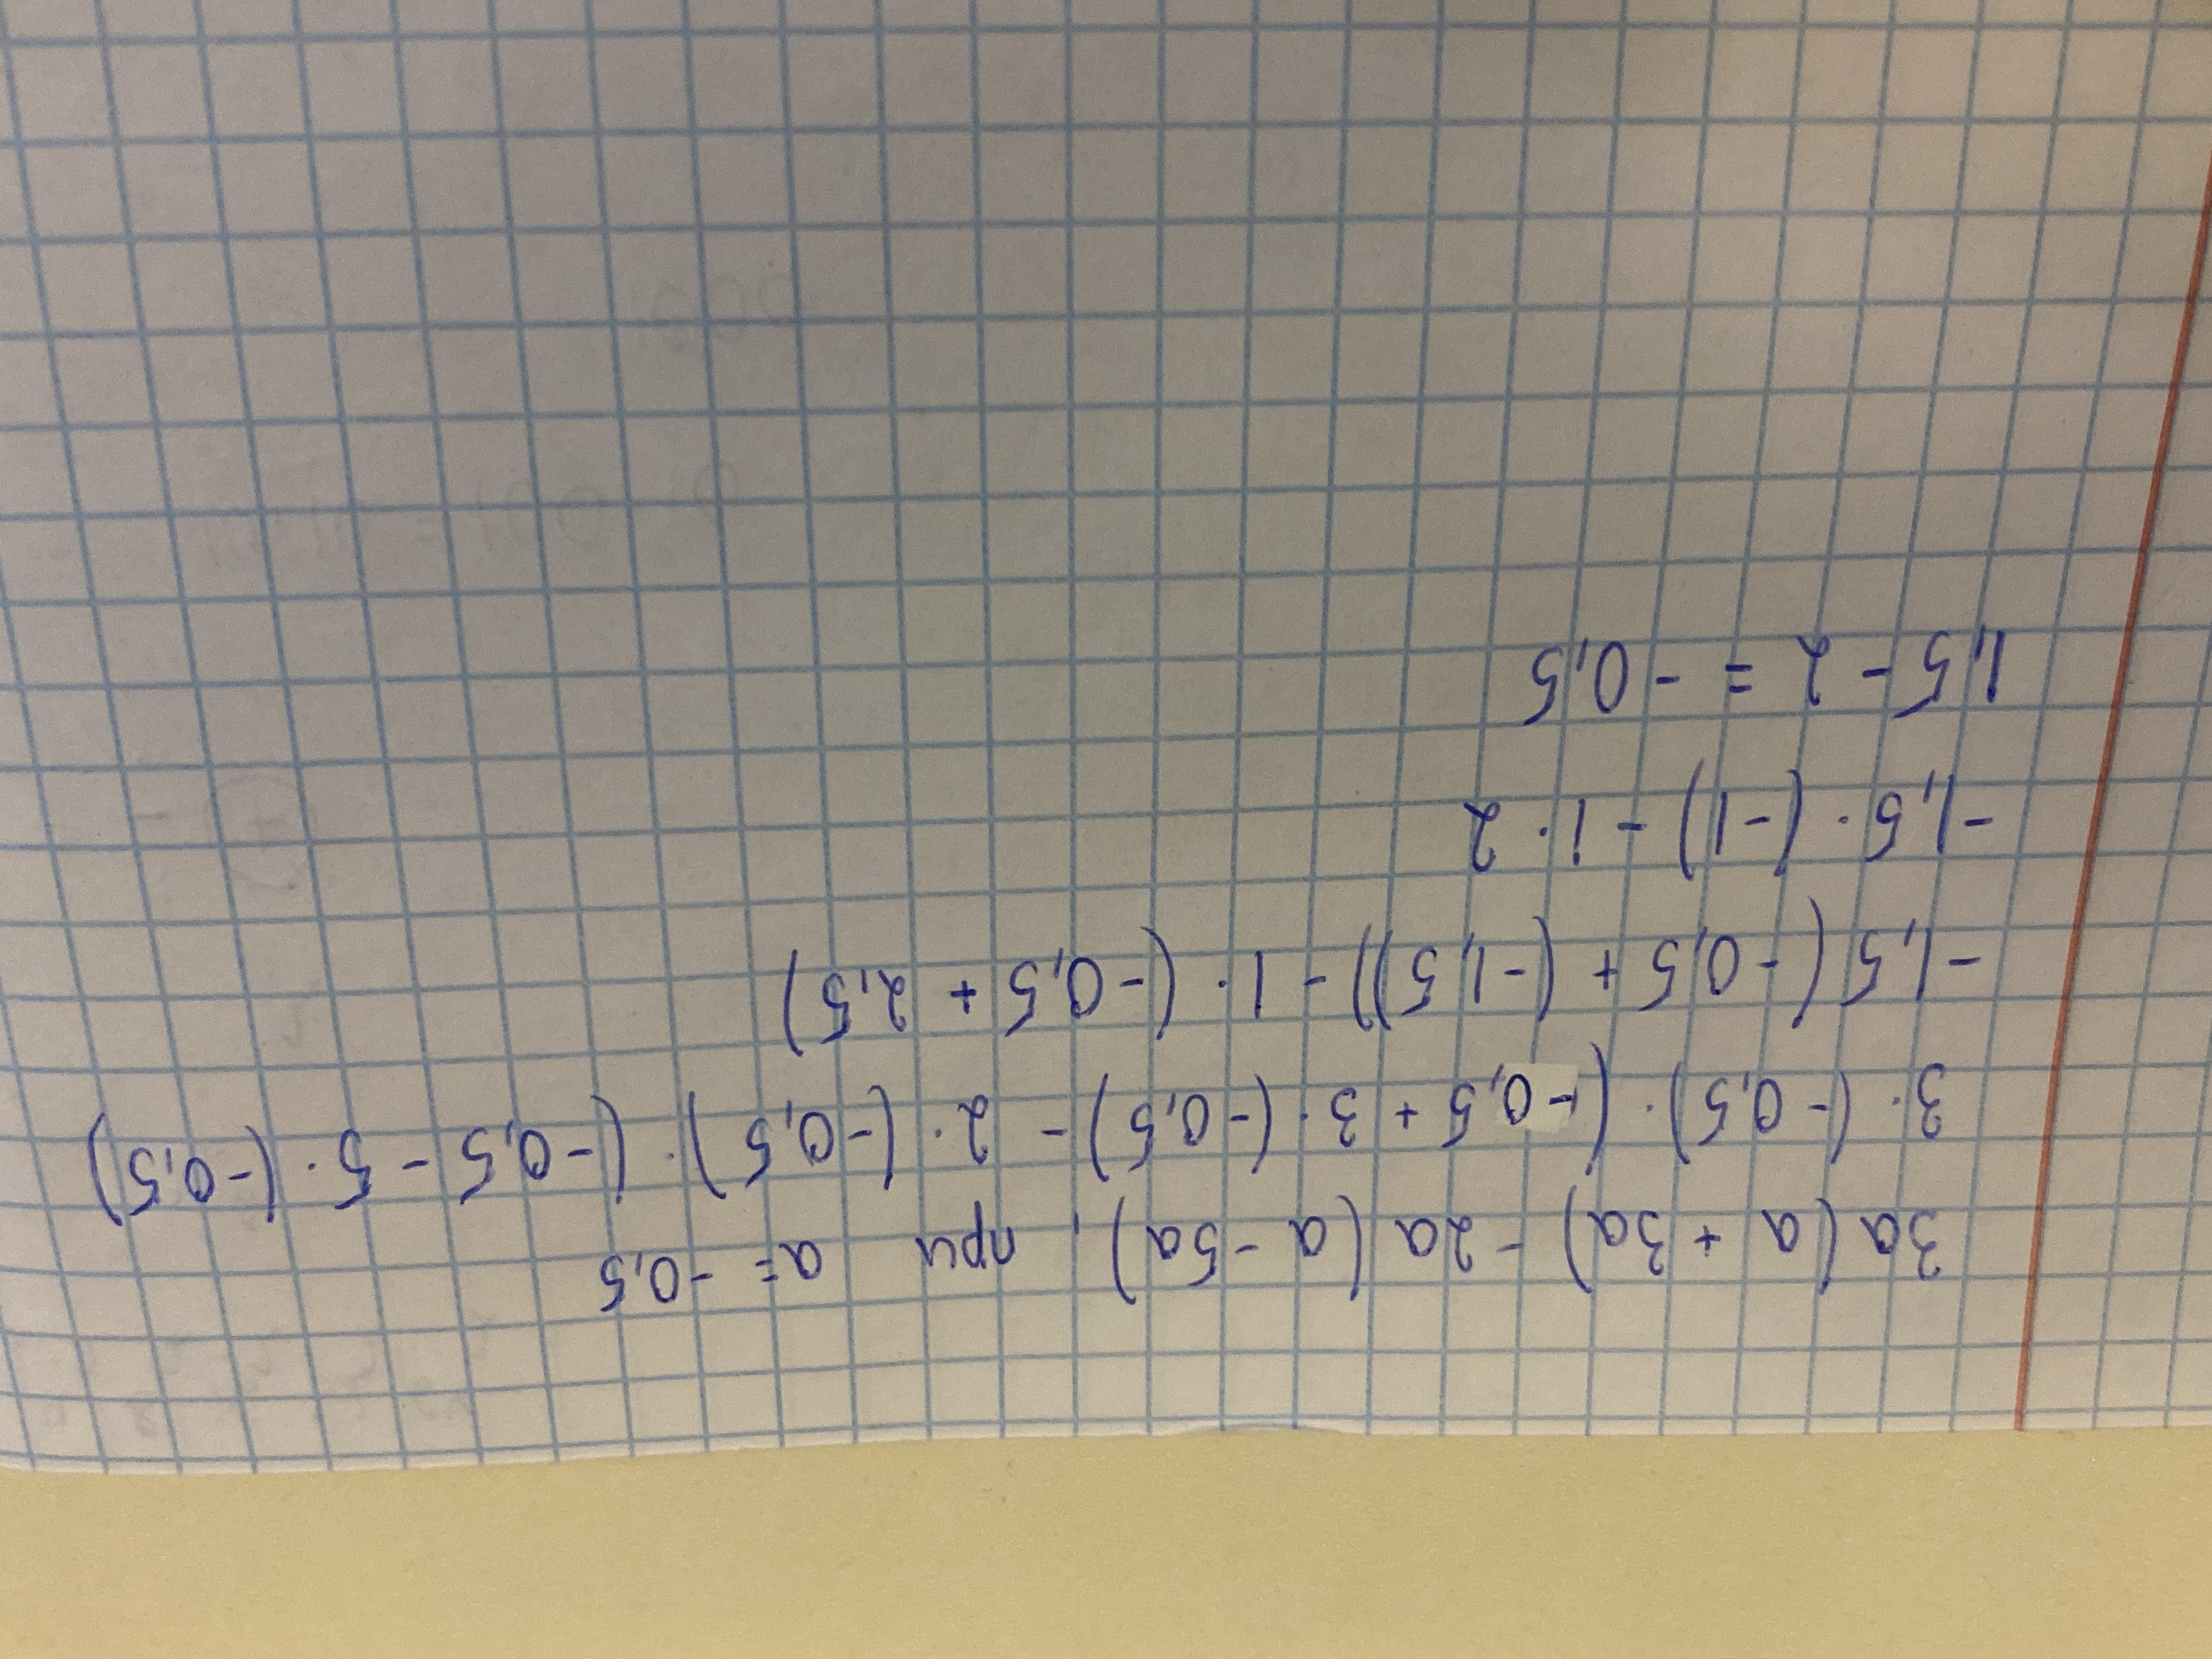 3a (a + 3a) - 2a (a - 5a), при a = -0,5
3 · (-0,5) · (-0,5 + 3 · (-0,5) - 2 · (-0,5) · (-0,5 - 5 · (-0,5)
-1,5 (-0,5 + (-1,5)) - 1 · (-0,5 + 2,5)
-1,5 · (-1) - 1 · 2
1,5 - 2 = -0,5